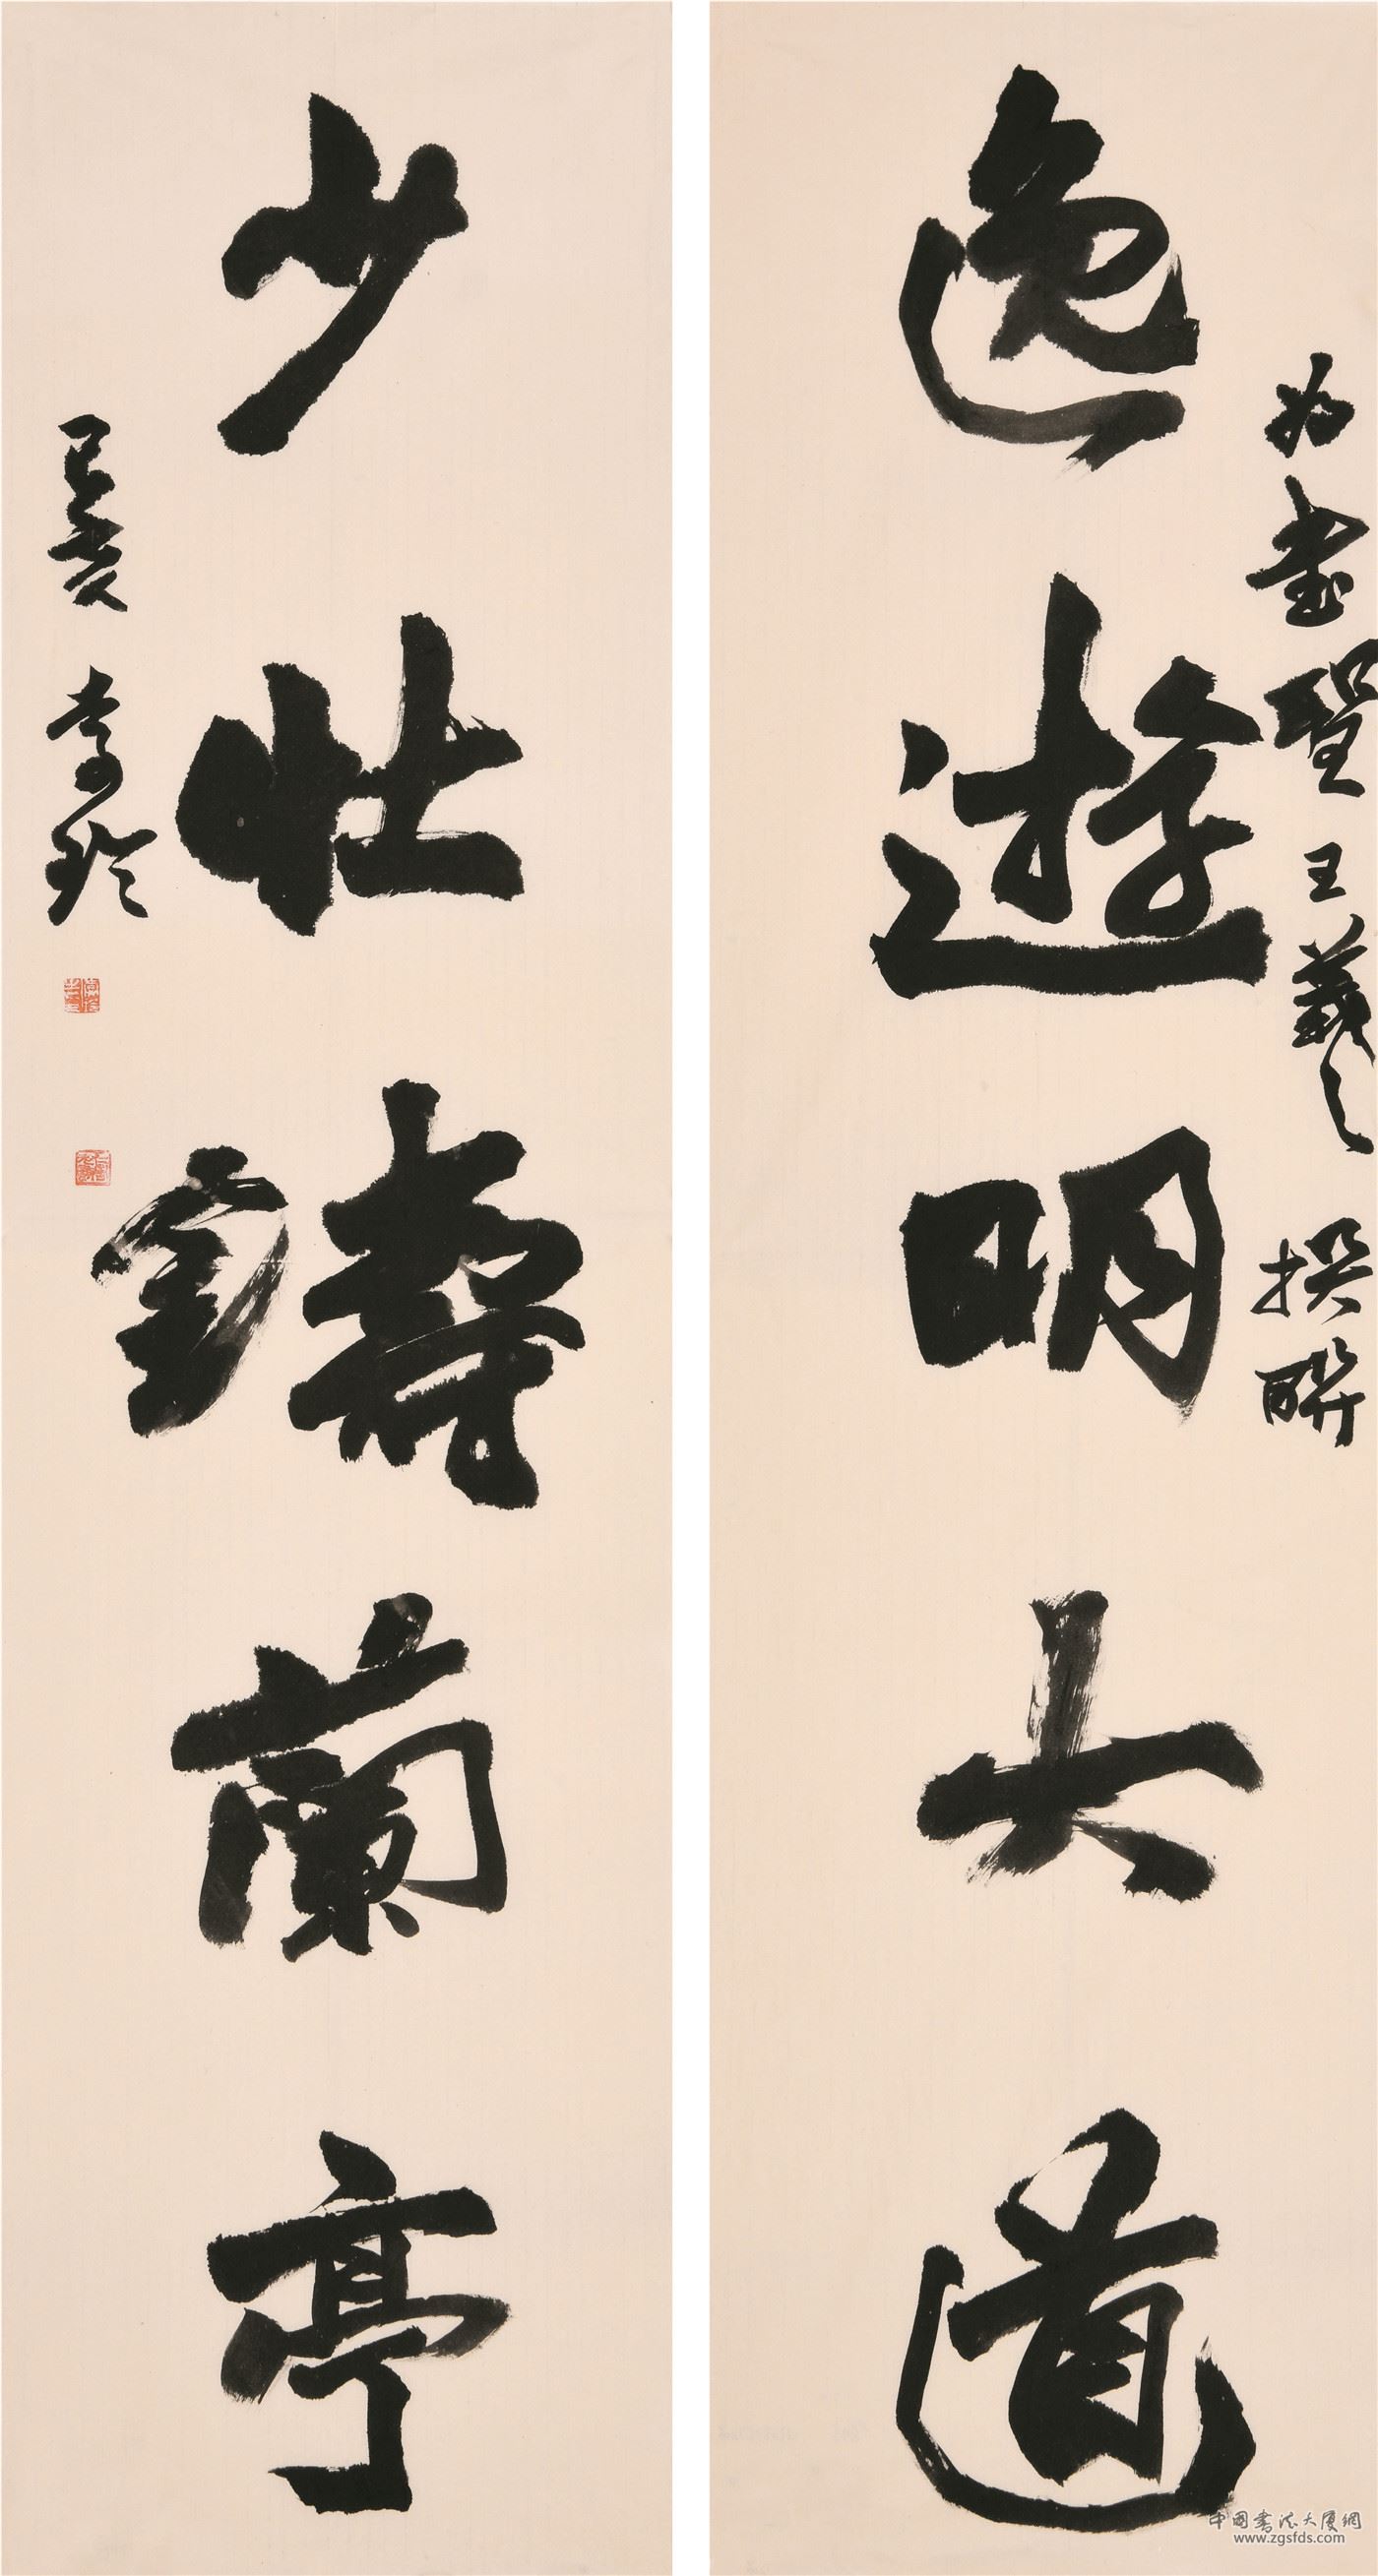 为書聖王羲之 撰聯
逸遊明大道
少壯鑄蘭亭
己亥 李
中國書法大厦網
www.zgsfds.com